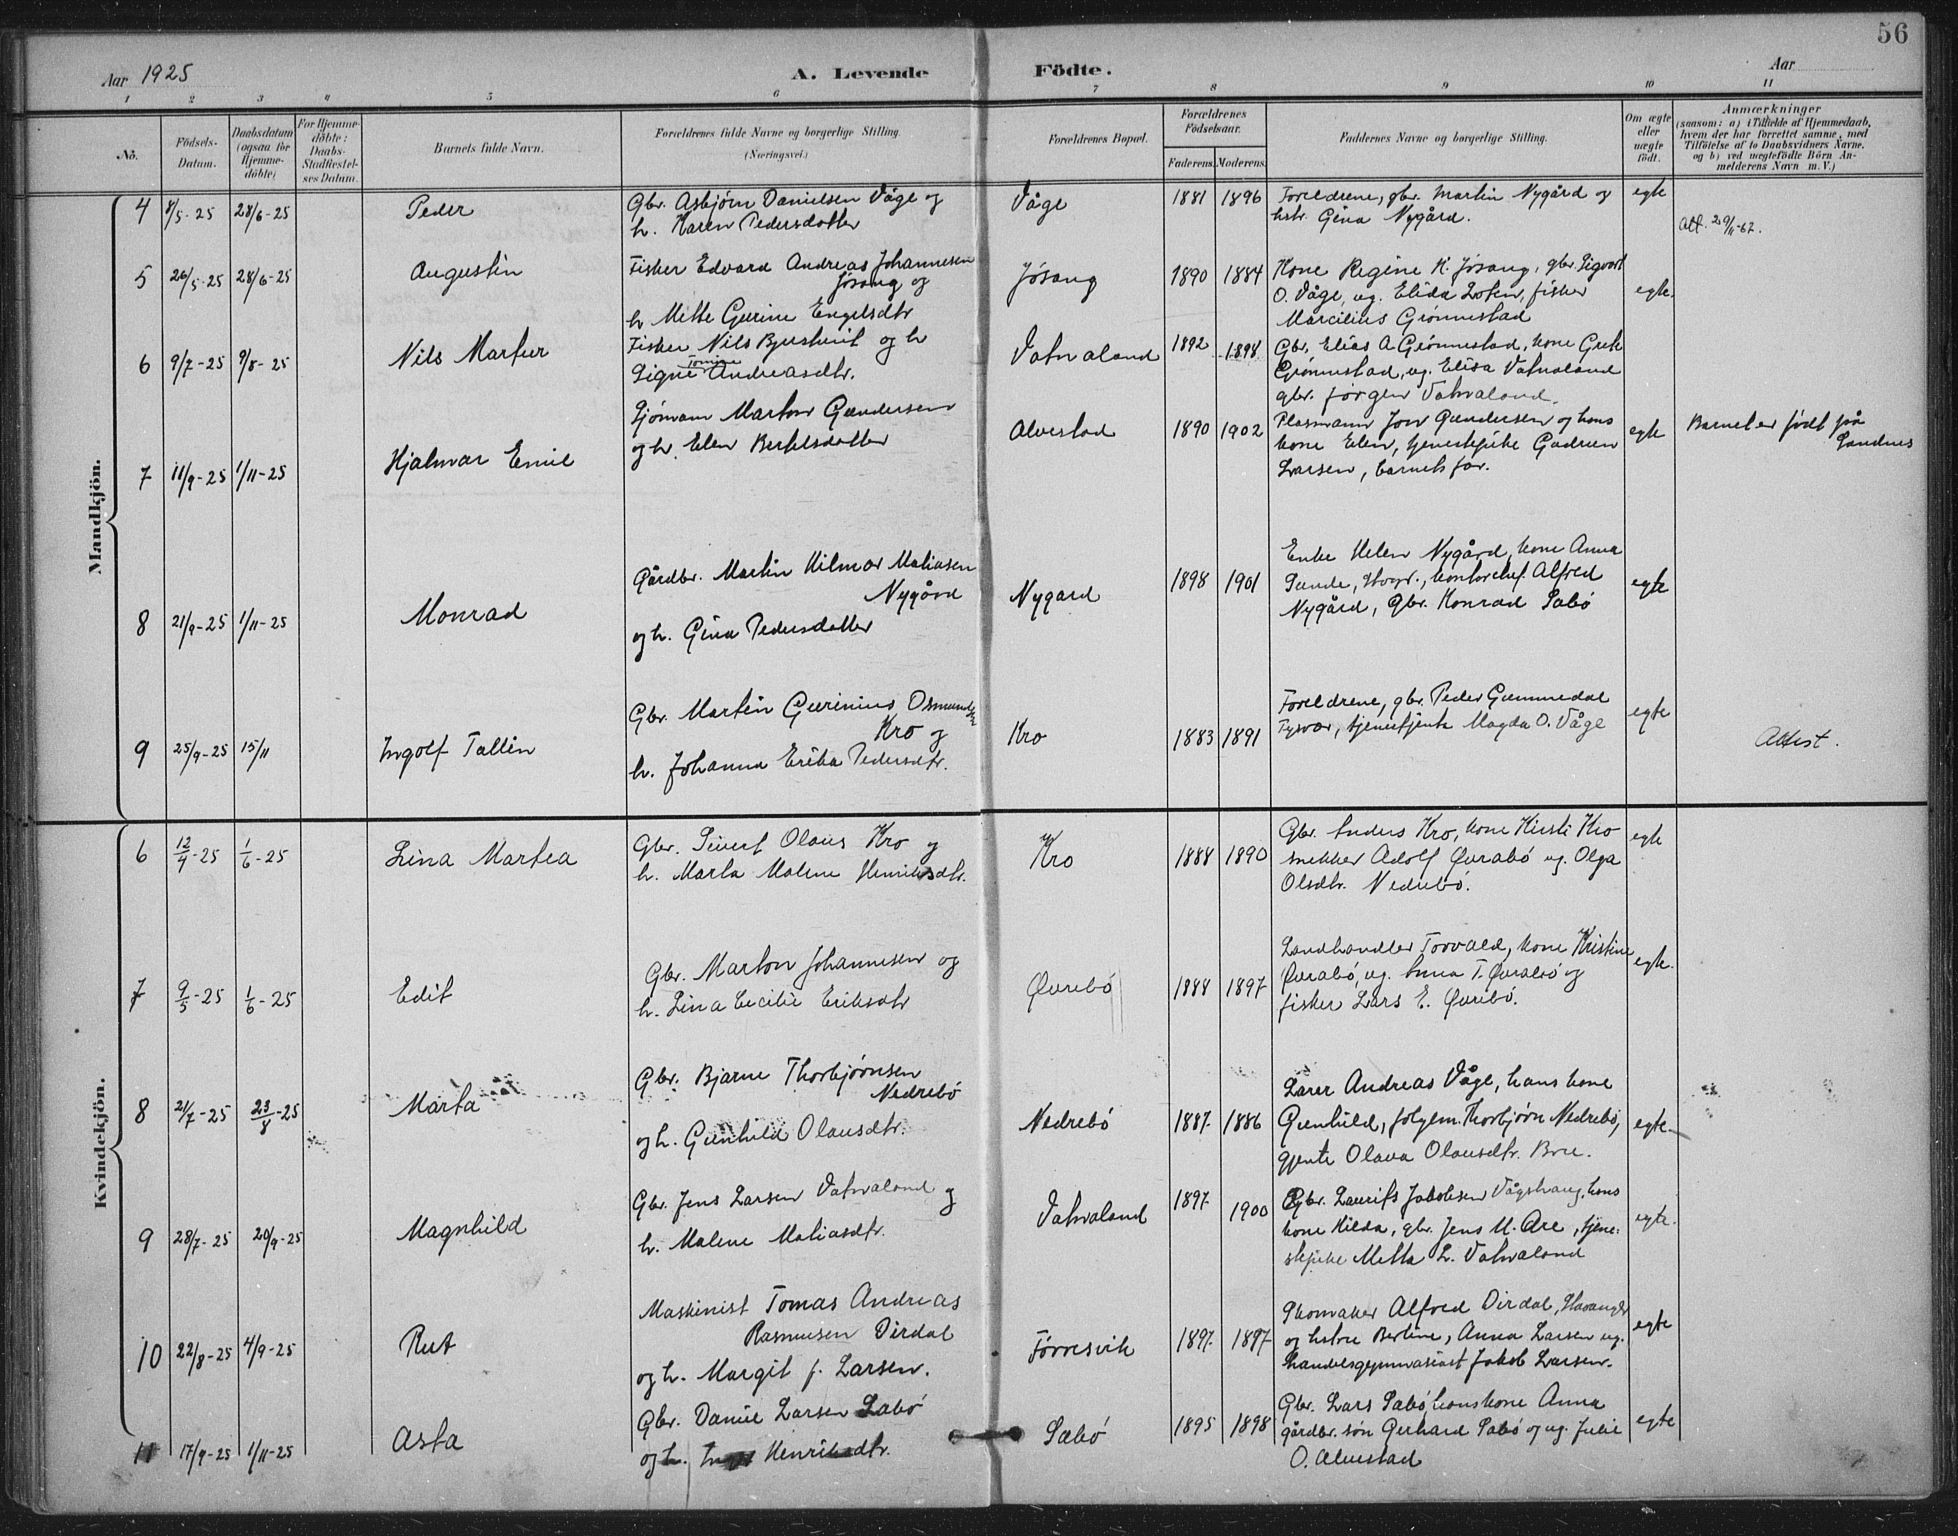 56
Aar 1925
A. Levende Födte.
Aar
1 2 3 4 5 6 7 8 9 10 11
No.
Födsels-Datum.
Daabsdatum (ogsaa for Hjemme-döbte)
For Hjemme-döbte: Daabs-Stadfæstel-ses Datum.
Barnets fulde Navn.
Forældrenes fulde Navne og borgerlige Stilling.
(Næringsvei.)
Forældrenes Bopæl.
Forældrenes Födselsaar.
Faderens. Moderens.
Faddernes Navne og borgerlige Stilling.
Om ægte eller uægte födt.
Anmærkninger
(saasom: a) i Tilfælde af Hjemmedaab, hvem der har forrettet samme, med Tilföielse af to Daabsvidners Navne. og b) ved uægtefödte Börn An-melderens Navn m. V.)
Mandkjön.
4 8/5-25 28/6-25 Peder
Gbr. Asbjørn Danielsen Våge og
h. Karen Pedersdatter
Våge 1881 1896
Foreldrene, gbr. Martin Nygård og
hstr. Gina Nygård.
egte
Att. 29/11-62.
5 26/5-25 28/6-25 Augustin
Fisker Edvard Andreas Johannesen
Jøsang og
h. Mette Gurine Engelsdtr
Jøsang 1890 1884
Kone Regine K. Jøsang, gbr. Sigvart
O. Våge, ug. Elida Lofen, fisker
Marcilius Grønnestad
egte.
6 9/7-25 9/8-25 Nils Martur
Fisker Nils Bjerknit og h
Signe Tomine Andreasdtr.
Vatnaland 1892 1894
Gbr. Elias A Grønnestad, kone Gurk
Grønnestad, ug. Elisa Vatnaland
gbr. Jørgen Vatnaland.
7 11/9-25 1/11-25 Hjalmar Emil
Sjømann Marton Gundersen
og h. Elen Bertelsdatter
Alvestad 1890 1902
Plasmann Jon Gundersen og hans
kone Elen, tjenestepike Gudrun
Larsen, barnets far.
egte
Barnet er født på
Sandnes
8 21/9-25 1/11-25 Monrad
Gårdbr. Martin Hilmar Matiasen
Nygård
og h. Gina Pedersdatter
Nygard 1898 1901
Enke Helen Nygård, kone Anna
Sande, Stvgr., kontorchef. Alfred
Nygård, Gbr. Konrad Sabø
egte
9 25/9-25 15/11 Ingolf Tallin
Gbr. Martin Gurinius Osmundsen
Kro og
h. Johanna Erika Pedersdtr.
Kro 1883 1891
Foreldrene, gbr. Peder Gummedal
Tysvær, tjenestjente Magda O. Våge
egte
Attest.
Kvindekjön.
6 12/4-25 1/6-25 Lina Martea
Gbr. Sivert Olaus Kro og
h. Marta Malene Henriksdtr.
Kro 1888 1890
Gbr. Anders Kro, kone Kirsti Kro
snekker Adolf Øvrabø ug. Olga
Olsdtr. Nedrebø.
egte
7 9/5-25 1/6-25 Edit
Gbr. Marton Johannesen og
h. Lina Cecilie Eriksdtr
Øvrebø 1888 1897
Landhandler Torvald, kone Kristine
Øvrabø, ug. Anna T. Øvrabø og
fisker Lars E. Øvrebø.
egte.
8 21/7-25 23/8-25 Marta
Gbr. Bjarne Thorbjørnsen
Nedrebø
og h. Gunhild Olausdtr.
Nedrebø 1887. 1886
Lærer Andreas Våge, hans kone
Gunhild, folgem. Thorbjørn Nedrebø,
gjente Olava Olausdtr. Bru.
egte
9 28/7-25 20/9-25 Magnhild
Gbr. Jens Larsen Vatnaland og
h. Malene Matiasdtr.
Vatnaland 1897. 1900
Gbr. Laurits Jakobsen Vågshaug, hans
kone Hilda, gbr. Jens M. Are, tjene-
stepike Metta L. Vatnaland
egte.
10 22/8-25 4/9-25 Rut
Maskinist Tomas Andreas
Rasmusen Dirdal
og h. Margit J. Larsen.
Førresvik 1897. 1897
Skomaker Alfred Dirdal, Stavanger
og hstru Berline, Anna Larsen ug.
handelsgymnasiast Jakob Larsen.
egte
11 17/9-25 1/11-25 Asta
Gbr. Daniel Larsen Sabø
og h. Henriksdtr.
Sæbø 1895 1898
Gbr. Lars Sabø, hans kone Anna
gårdbr. søn Gerhard Sabø og ug. Julie
O. Alvestad
egte